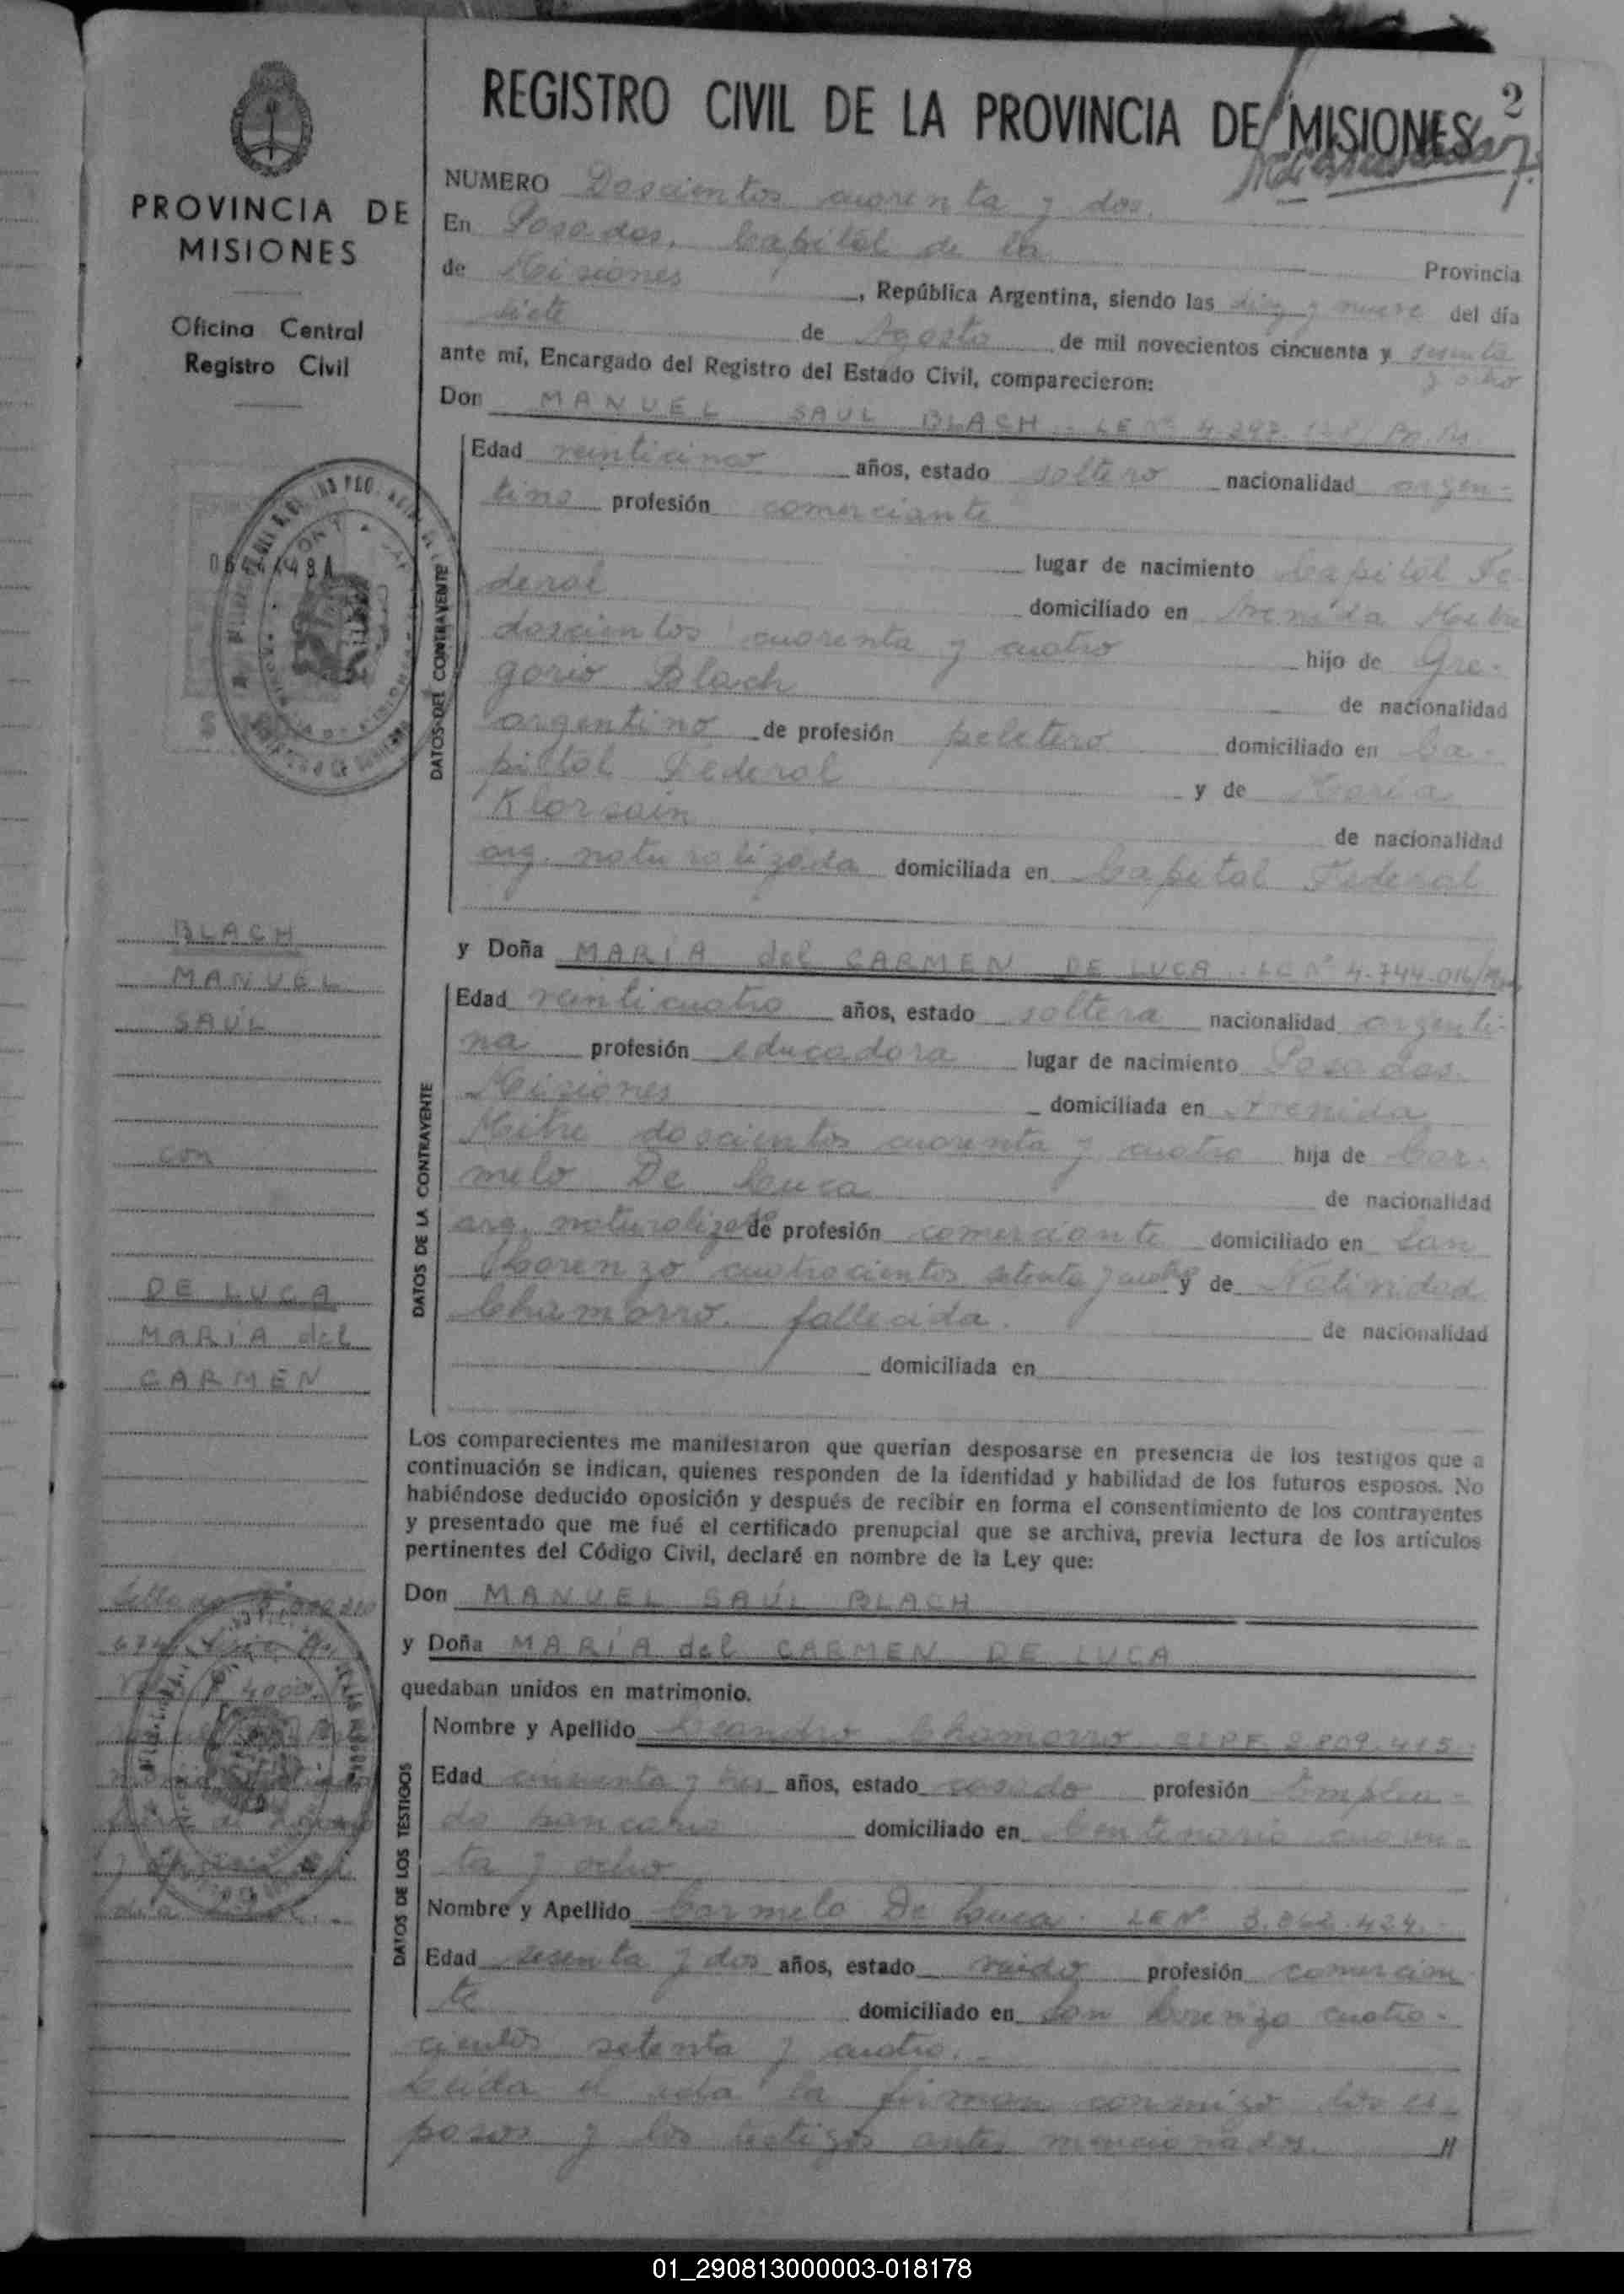 2
REGISTRO CIVIL DE LA PROVINCIA DE MISIONES
PROVINCIA DE
MISIONES
Oficina Central
Registro Civil
NUMERO Doscientos cuarenta y dos.
En Posadas, Capital de la Provincia
de Misiones, República Argentina, siendo las diez y nueve del día
siete de Agosto de mil novecientos cincuenta y sesenta
y ocho
ante mí, Encargado del Registro del Estado Civil, comparecieron:
Don MANUEL SAUL BLACH - LE Nº 4.297.
DATOS DEL CONTRAYENTE
Edad veinticinco años, estado soltero nacionalidad argen-
tino profesión comerciante
lugar de nacimiento Capital Fe-
deral domiciliado en Avenida Mitre
doscientos cuarenta y cuatro hijo de Gre-
gorio Blach de nacionalidad
argentino de profesión peletero domiciliado en Ca-
pital Federal y de María
Klorsain de nacionalidad
arg. naturalizada domiciliada en Capital Federal
BLACH
MANUEL
SAÚL
con
DE LUCA
MARÍA del
CARMEN
y Doña MARÍA del CARMEN DE LUCA - LC Nº 4.744.016
DATOS DE LA CONTRAYENTE
Edad veinticuatro años, estado soltera nacionalidad argenti-
na profesión educadora lugar de nacimiento Posadas
Misiones domiciliada en Avenida
Mitre doscientos cuarenta y cuatro hija de Car-
melo De Luca de nacionalidad
arg. naturalizado de profesión comerciante domiciliado en San
Lorenzo cuatrocientos setenta y cuatro y de Natividad
Chamorro. fallecida. de nacionalidad
domiciliada en
Los comparecientes me manifestaron que querían desposarse en presencia de los testigos que a
continuación se indican, quienes responden de la identidad y habilidad de los futuros esposos. No
habiéndose deducido oposición y después de recibir en forma el consentimiento de los contrayentes
y presentado que me fué el certificado prenupcial que se archiva, previa lectura de los artículos
pertinentes del Código Civil, declaré en nombre de la Ley que:
Don MANUEL SAÚL BLACH
y Doña MARÍA del CARMEN DE LUCA
quedaban unidos en matrimonio.
DATOS DE LOS TESTIGOS
Nombre y Apellido Leandro Chamorro 2.809.415
Edad cincuenta y tres años, estado casado profesión Emplea-
do bancario domiciliado en Centenario cuaren-
ta y ocho
Nombre y Apellido Carmelo De Luca - LE Nº 3.062.424.-
Edad sesenta y dos años, estado viudo profesión comercian
te domiciliado en San Lorenzo cuatro-
cientos setenta y cuatro.-
Leída el acta la firman conmigo los es-
posos y los testigos antes mencionados. //
01_290813000003-018178